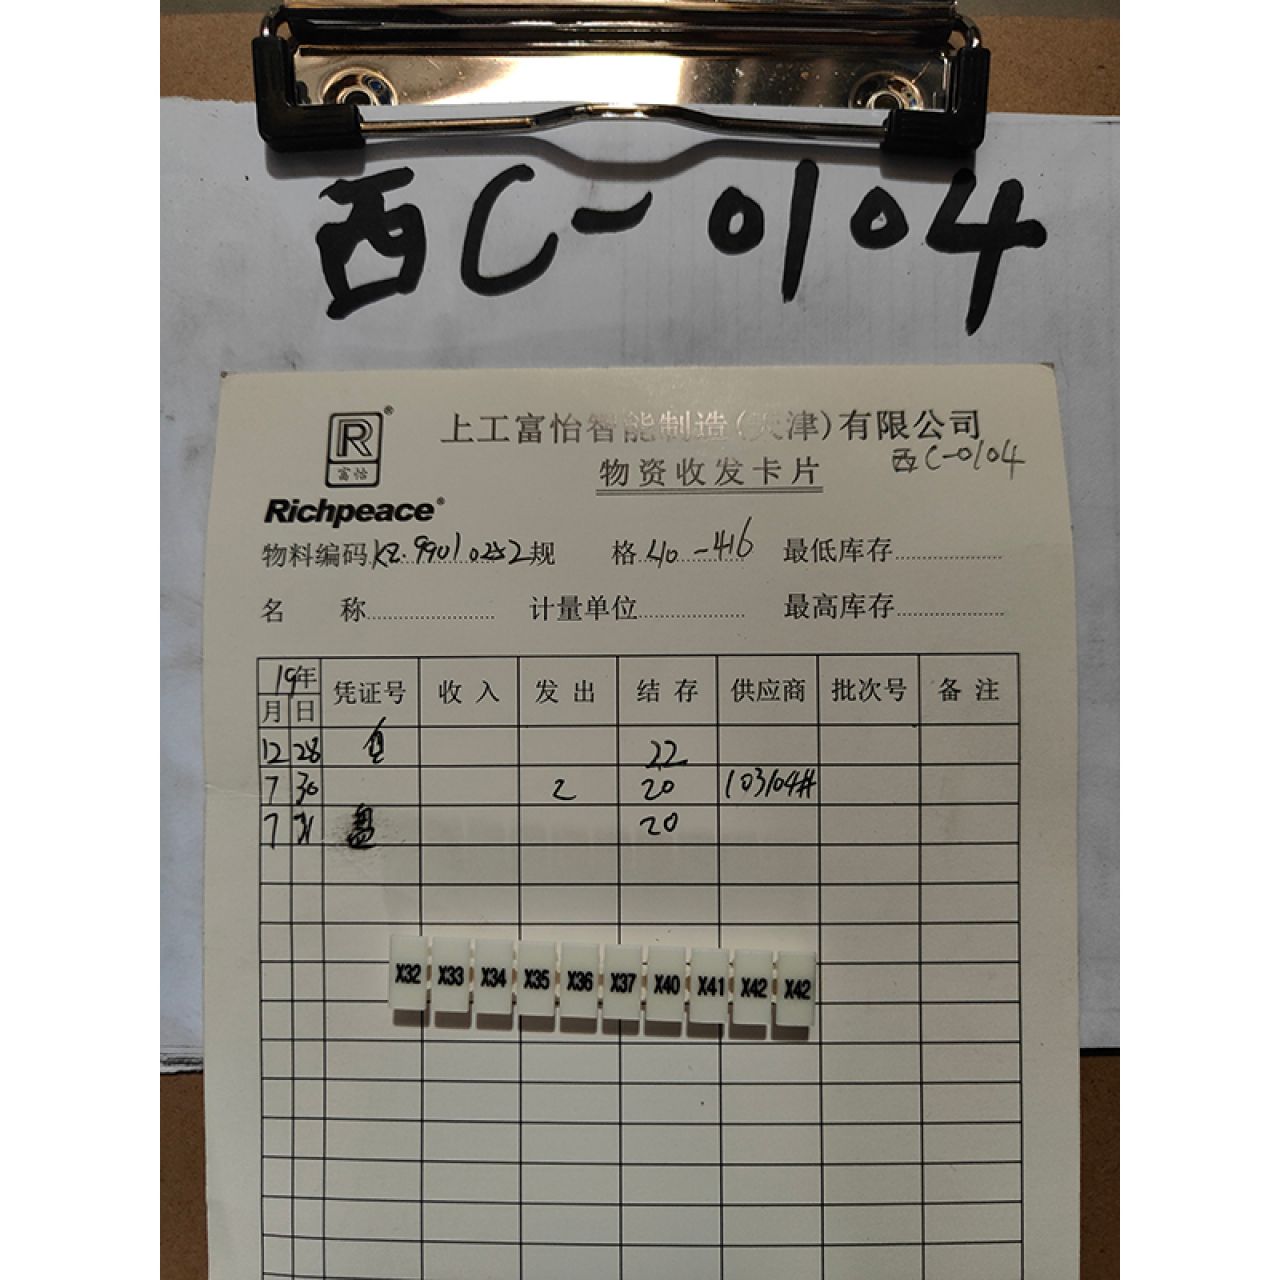 西C-0104
R®
富怡
Richpeace®
上工富怡智能制造(天津)有限公司
西C-0104
物资收发卡片
物料编码 KZ.99010252 规 格 410-416 最低库存
名 称 计量单位 最高库存
19年 凭证号 收入 发出 结存 供应商 批次号 备注
月 日
12 28 22
7 30 2 20 103104#
7 31 盘 20
X32 X33 X34 X35 X36 X37 X40 X41 X42 X42